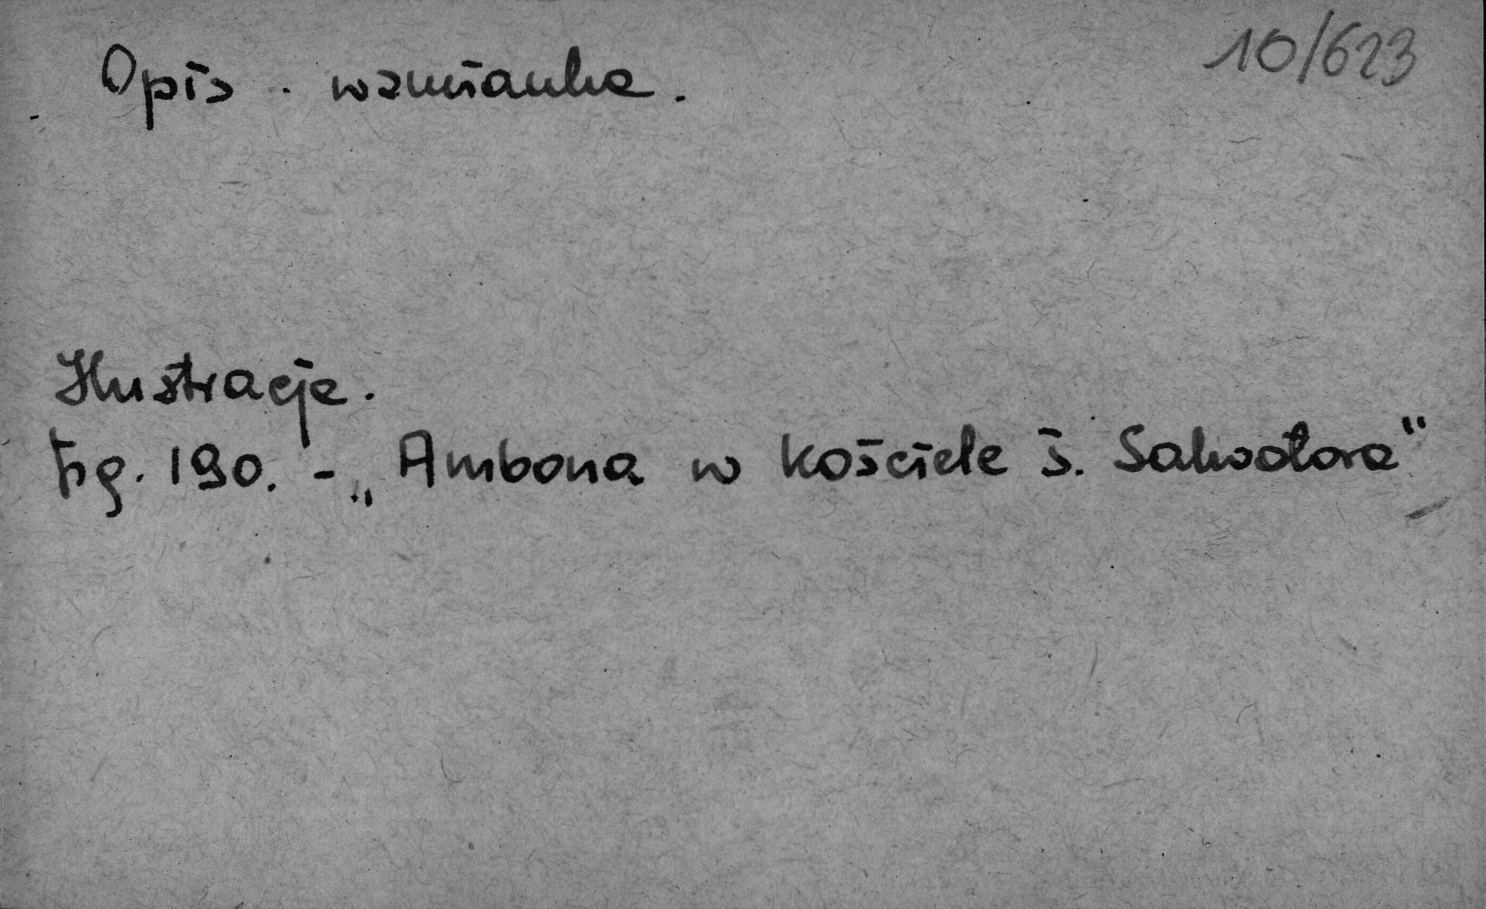 10/623
Opis. wzmianka.
Ilustracje.
Fig. 190. - „Ambona w kościele ś. Salwatora"